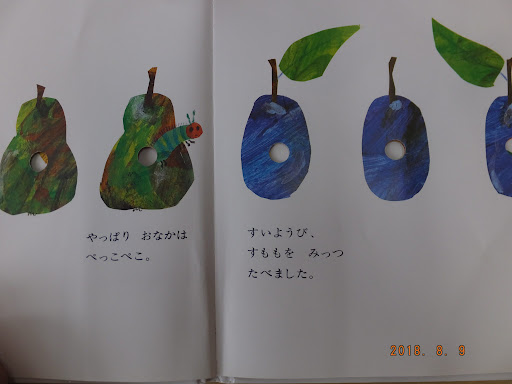 やっぱり　おなかは
ぺっこぺこ。
すいようび、
すももを　みっつ
たべました。
2018. 8. 9